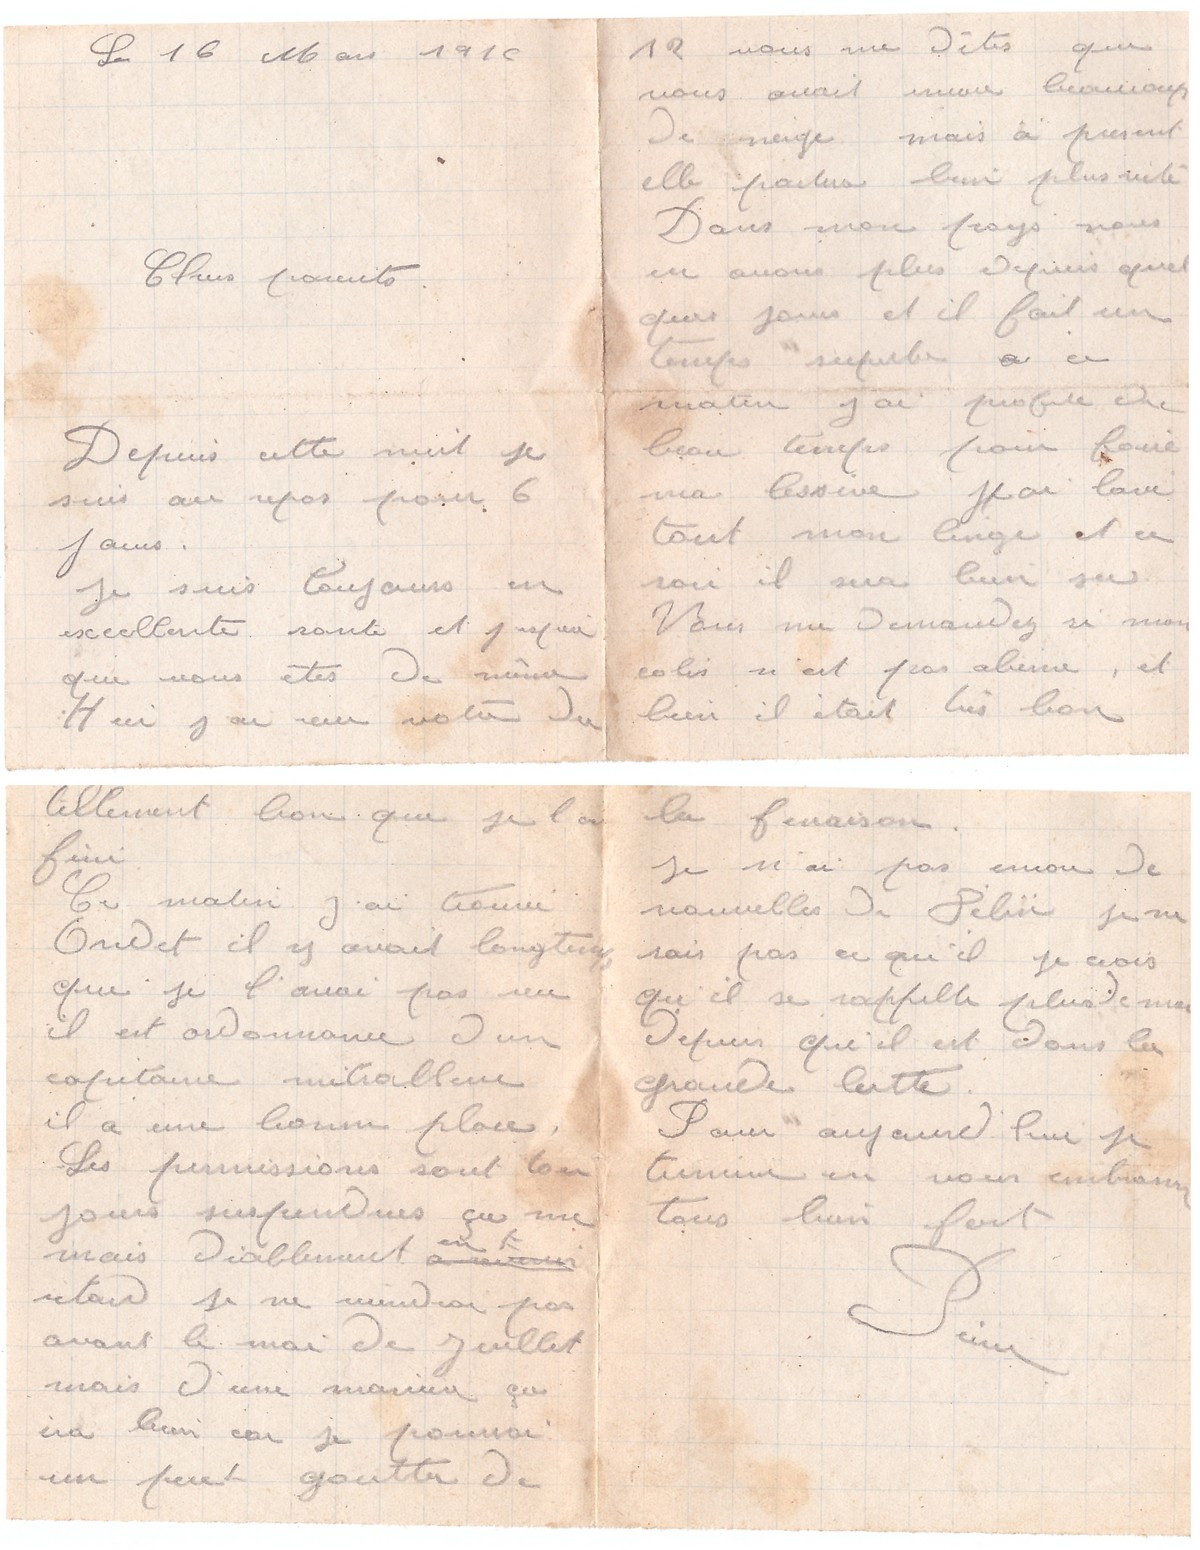 Le 16 Mars 1916
Chers parents
Depuis cette nuit je
suis au repos pour 6
jours.
Je suis toujours en
excellente sante et j espère
que vous êtes de même
Hier j ai reu votre du
12 vous me dites que
vous avait encore beaucoup
de neige mais à present
elle partira bien plus vite
Dans mon pays nous
en avons plus depuis quel
ques jours et il fait un
temps superbe a ce
matin j'ai profité du
beau temps pour faire
ma lessive j'ai lavé
tout mon linge et ce
soir il sera bien sec
Vous me demandez si mon
colis n'est pas abime, et
bien il était très bon
tellement bon que je l'ai
fini
Ce matin j'ai trouvé
Oudet il y avait longtemps
que je l'avai pas vu
il est ordonnance d'un
capitaine mitralleur
il a une bonne place,
Les permissions sont tou
jours suspendues ça me
mais diablement en
retard je ne viendrai pas
avant le moi de Juillet
mais d'une manière ça
ira bien car je pourrai
un peut goutter de
la fenaison.
Je n'ai pas encore de
nouvelles de Félix je ne
sais pas ce qu'il je crois
qu'il se rappelle plus de moi
depuis qu'il est dans la
grande lutte.
Pour aujourd hui je
termine en vous embrassant
tous bien fort